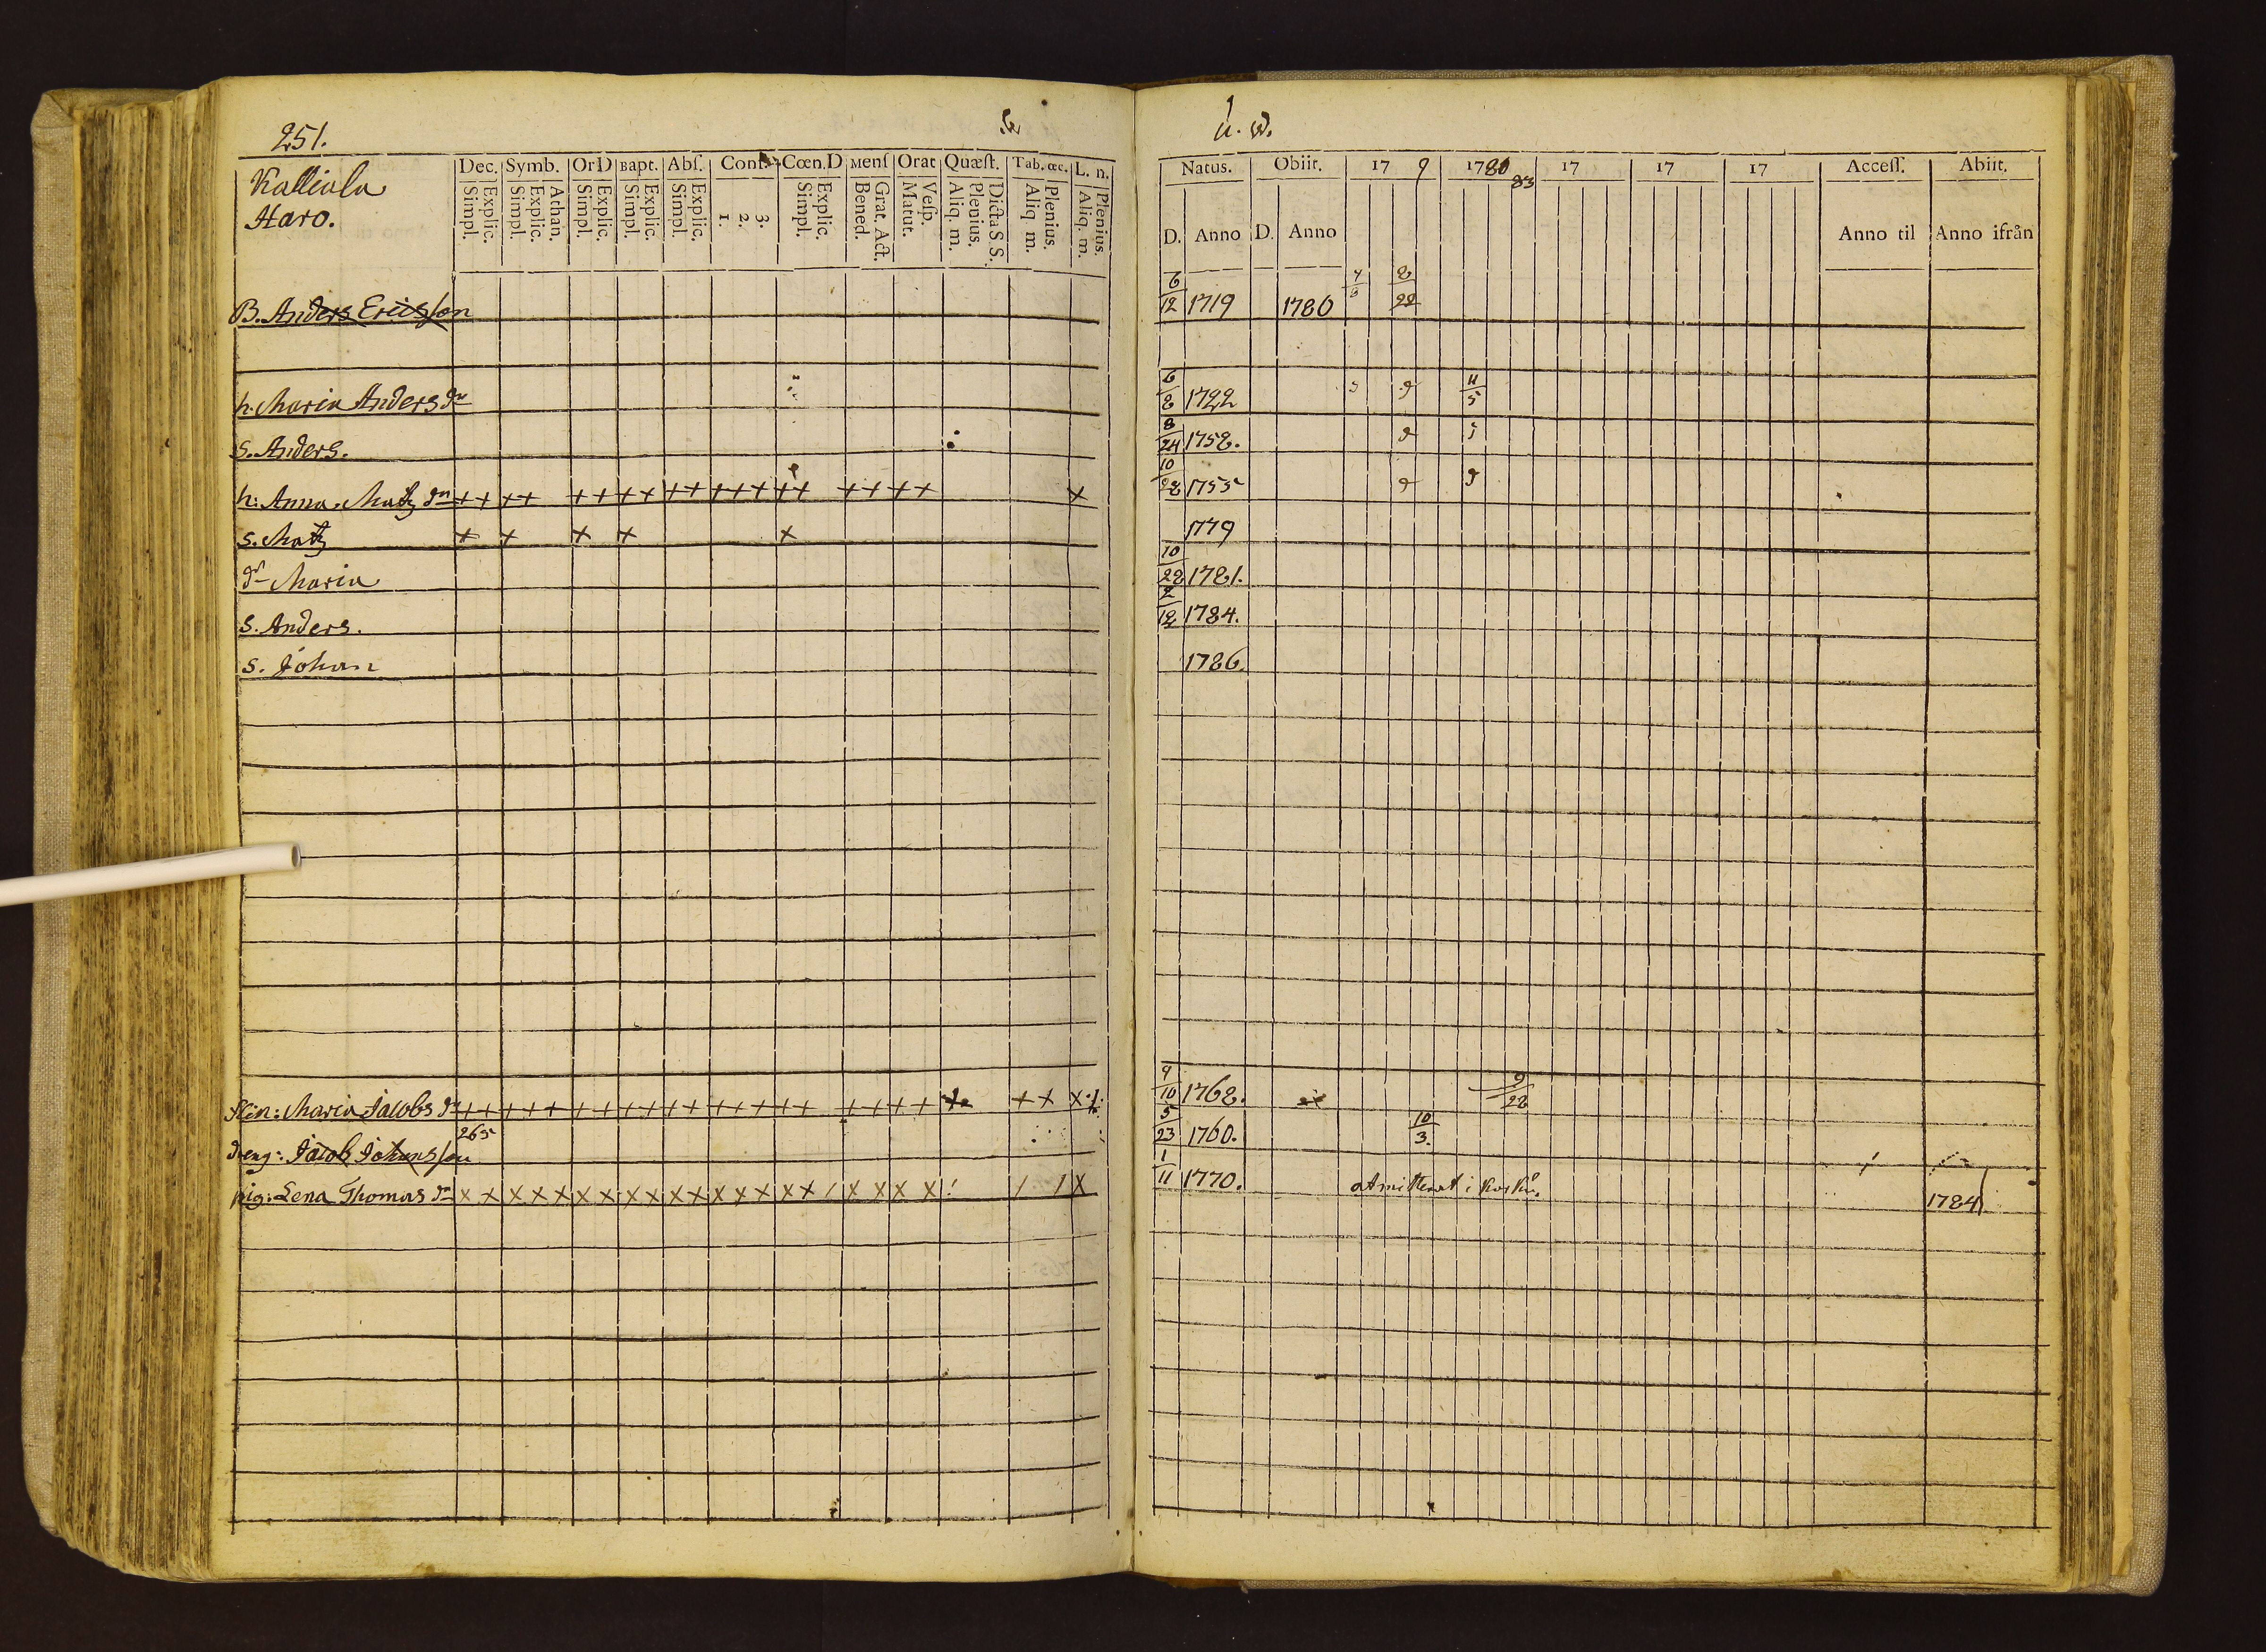 251.
Kalliala
Haro.
Dec. Symb. OrD Bapt. Abſ. Conf. Cœn.D Menſ Orat Quæſt. Tab. œc. L. n.
Explic. Simpl. Athan. Explic. Simpl. Explic. Simpl. Explic. Simpl. Explic. Simpl. 3. 2. 1. Explic. Simpl. Grat. Act. Bened. Veſp. Matut. Dicta S. S. Plenius. Aliq. m. Plenius. Aliq m. Plenius. Aliq. m.
B. Anders Ericsson
h. Maria Anders dr
S. Anders.
h: Anna Matz dr ++ ++ ++ ++ ++ +++ ++ ++ ++ x
S. Matz x x x x x
dr Maria
S. Anders.
S. Johan
Maria Jacobs dr ++ +++ ++ ++ ++ +++ ++ ++ ++ x ++ x
265
dreng: Jacob Johansson
pig: Lena Thomas dr x x x x x x x x x x x x x x x x / x x x x ! / / x
u. w.
Natus. Obiit. 17 9 1780 83 17 17 17 Acceſſ. Abiit.
D. Anno D. Anno Anno til Anno ifrån
6/12 1719 1780 8/22
6/8 1722 11/5
8/24 1758.
10/28 1755
1779
10/28 1781.
2/18 1784.
1786.
9/10 1768. 9/28
5/23 1760. 10/3.
1/11 1770. 1784